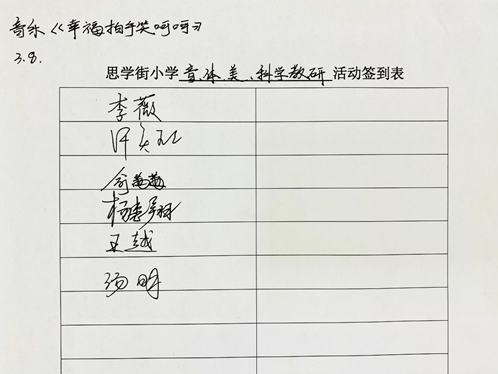 音乐《幸福拍手笑呵呵》
3.8.
思学街小学音、体、美、科学教研活动签到表
李薇
俞菊菊
杨春翔
王越
汤明